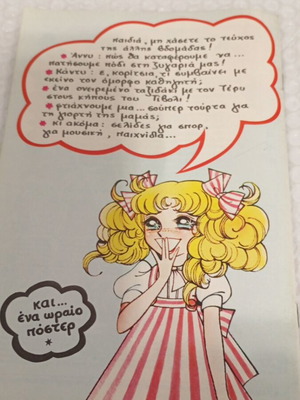 Παιδιά, μη χάσετε το τεύχος
της άλλης βδομάδας!
* Άννυ: πώς θα καταφέρουμε να...
πατήσουμε πόδι στη ζυγαριά μας!
* Κάντυ: ε, κορίτσια, τι συμβαίνει με
εκείνο τον όμορφο καθηγητή;
* ένα ονειρεμένο ταξιδάκι με τον Τέρυ
στους κήπους του Τίβολι!
* φτιάχνουμε μια... σούπερ τούρτα για
τη γιορτή της μαμάς;
* κι ακόμα: σελίδες για σπορ,
για μουσική, παιχνίδια...
και...
ένα ωραίο
πόστερ
*